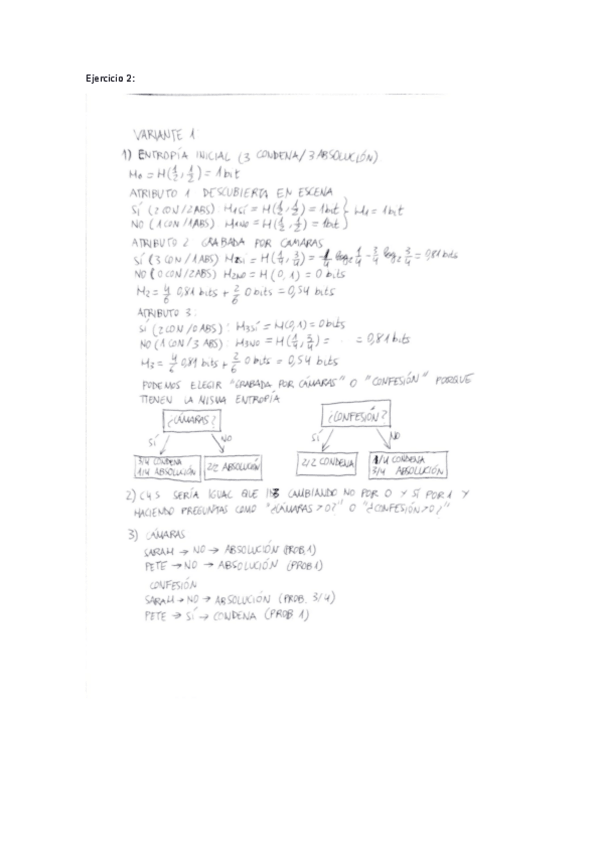 Ejercicio 2:
VARIANTE 1
1) ENTROPÍA INICIAL (3 CONDENA/3 ABSOLUCIÓN)
H₀ = H(1/2, 1/2) = 1 bit
ATRIBUTO 1 DESCUBIERTA EN ESCENA
SÍ (2 CON/2 ABS): H1sí = H(1/2, 1/2) = 1 bit } H₁ = 1 bit
NO (1 CON/1 ABS) H1NO = H(1/2, 1/2) = 1 bit
ATRIBUTO 2 GRABADA POR CÁMARAS
SÍ (3 CON/1 ABS) H2sí = H(1/4, 3/4) = -1/4 log₂ 1/4 - 3/4 log₂ 3/4 = 0,81 bits
NO (0 CON/2 ABS) H2NO = H(0, 1) = 0 bits
H₂ = 4/6 0,81 bits + 2/6 0 bits = 0,54 bits
ATRIBUTO 3:
SÍ (2 CON/0 ABS): H3SÍ = H(0,1) = 0 bits
NO (1 CON/3 ABS): H3NO = H(1/4, 3/4) = = 0,81 bits
H₃ = 4/6 0,81 bits + 2/6 0 bits = 0,54 bits
PODEMOS ELEGIR "GRABADA POR CÁMARAS" O "CONFESIÓN" PORQUE
TIENEN LA MISMA ENTROPÍA
¿CÁMARAS? ¿CONFESIÓN?
SÍ NO SÍ NO
3/4 CONDENA
1/4 ABSOLUCIÓN
2/2 ABSOLUCIÓN
2/2 CONDENA
1/4 CONDENA
3/4 ABSOLUCIÓN
2) C4.5 SERÍA IGUAL QUE ID3 CAMBIANDO NO POR 0 Y SÍ POR 1 Y
HACIENDO PREGUNTAS COMO "¿CÁMARAS > 0?" O "¿CONFESIÓN > 0?"
3) CÁMARAS
SARAH → NO → ABSOLUCIÓN (PROB. 1)
PETE → NO → ABSOLUCIÓN (PROB 1)
CONFESIÓN
SARAH → NO → ABSOLUCIÓN (PROB. 3/4)
PETE → SÍ → CONDENA (PROB 1)